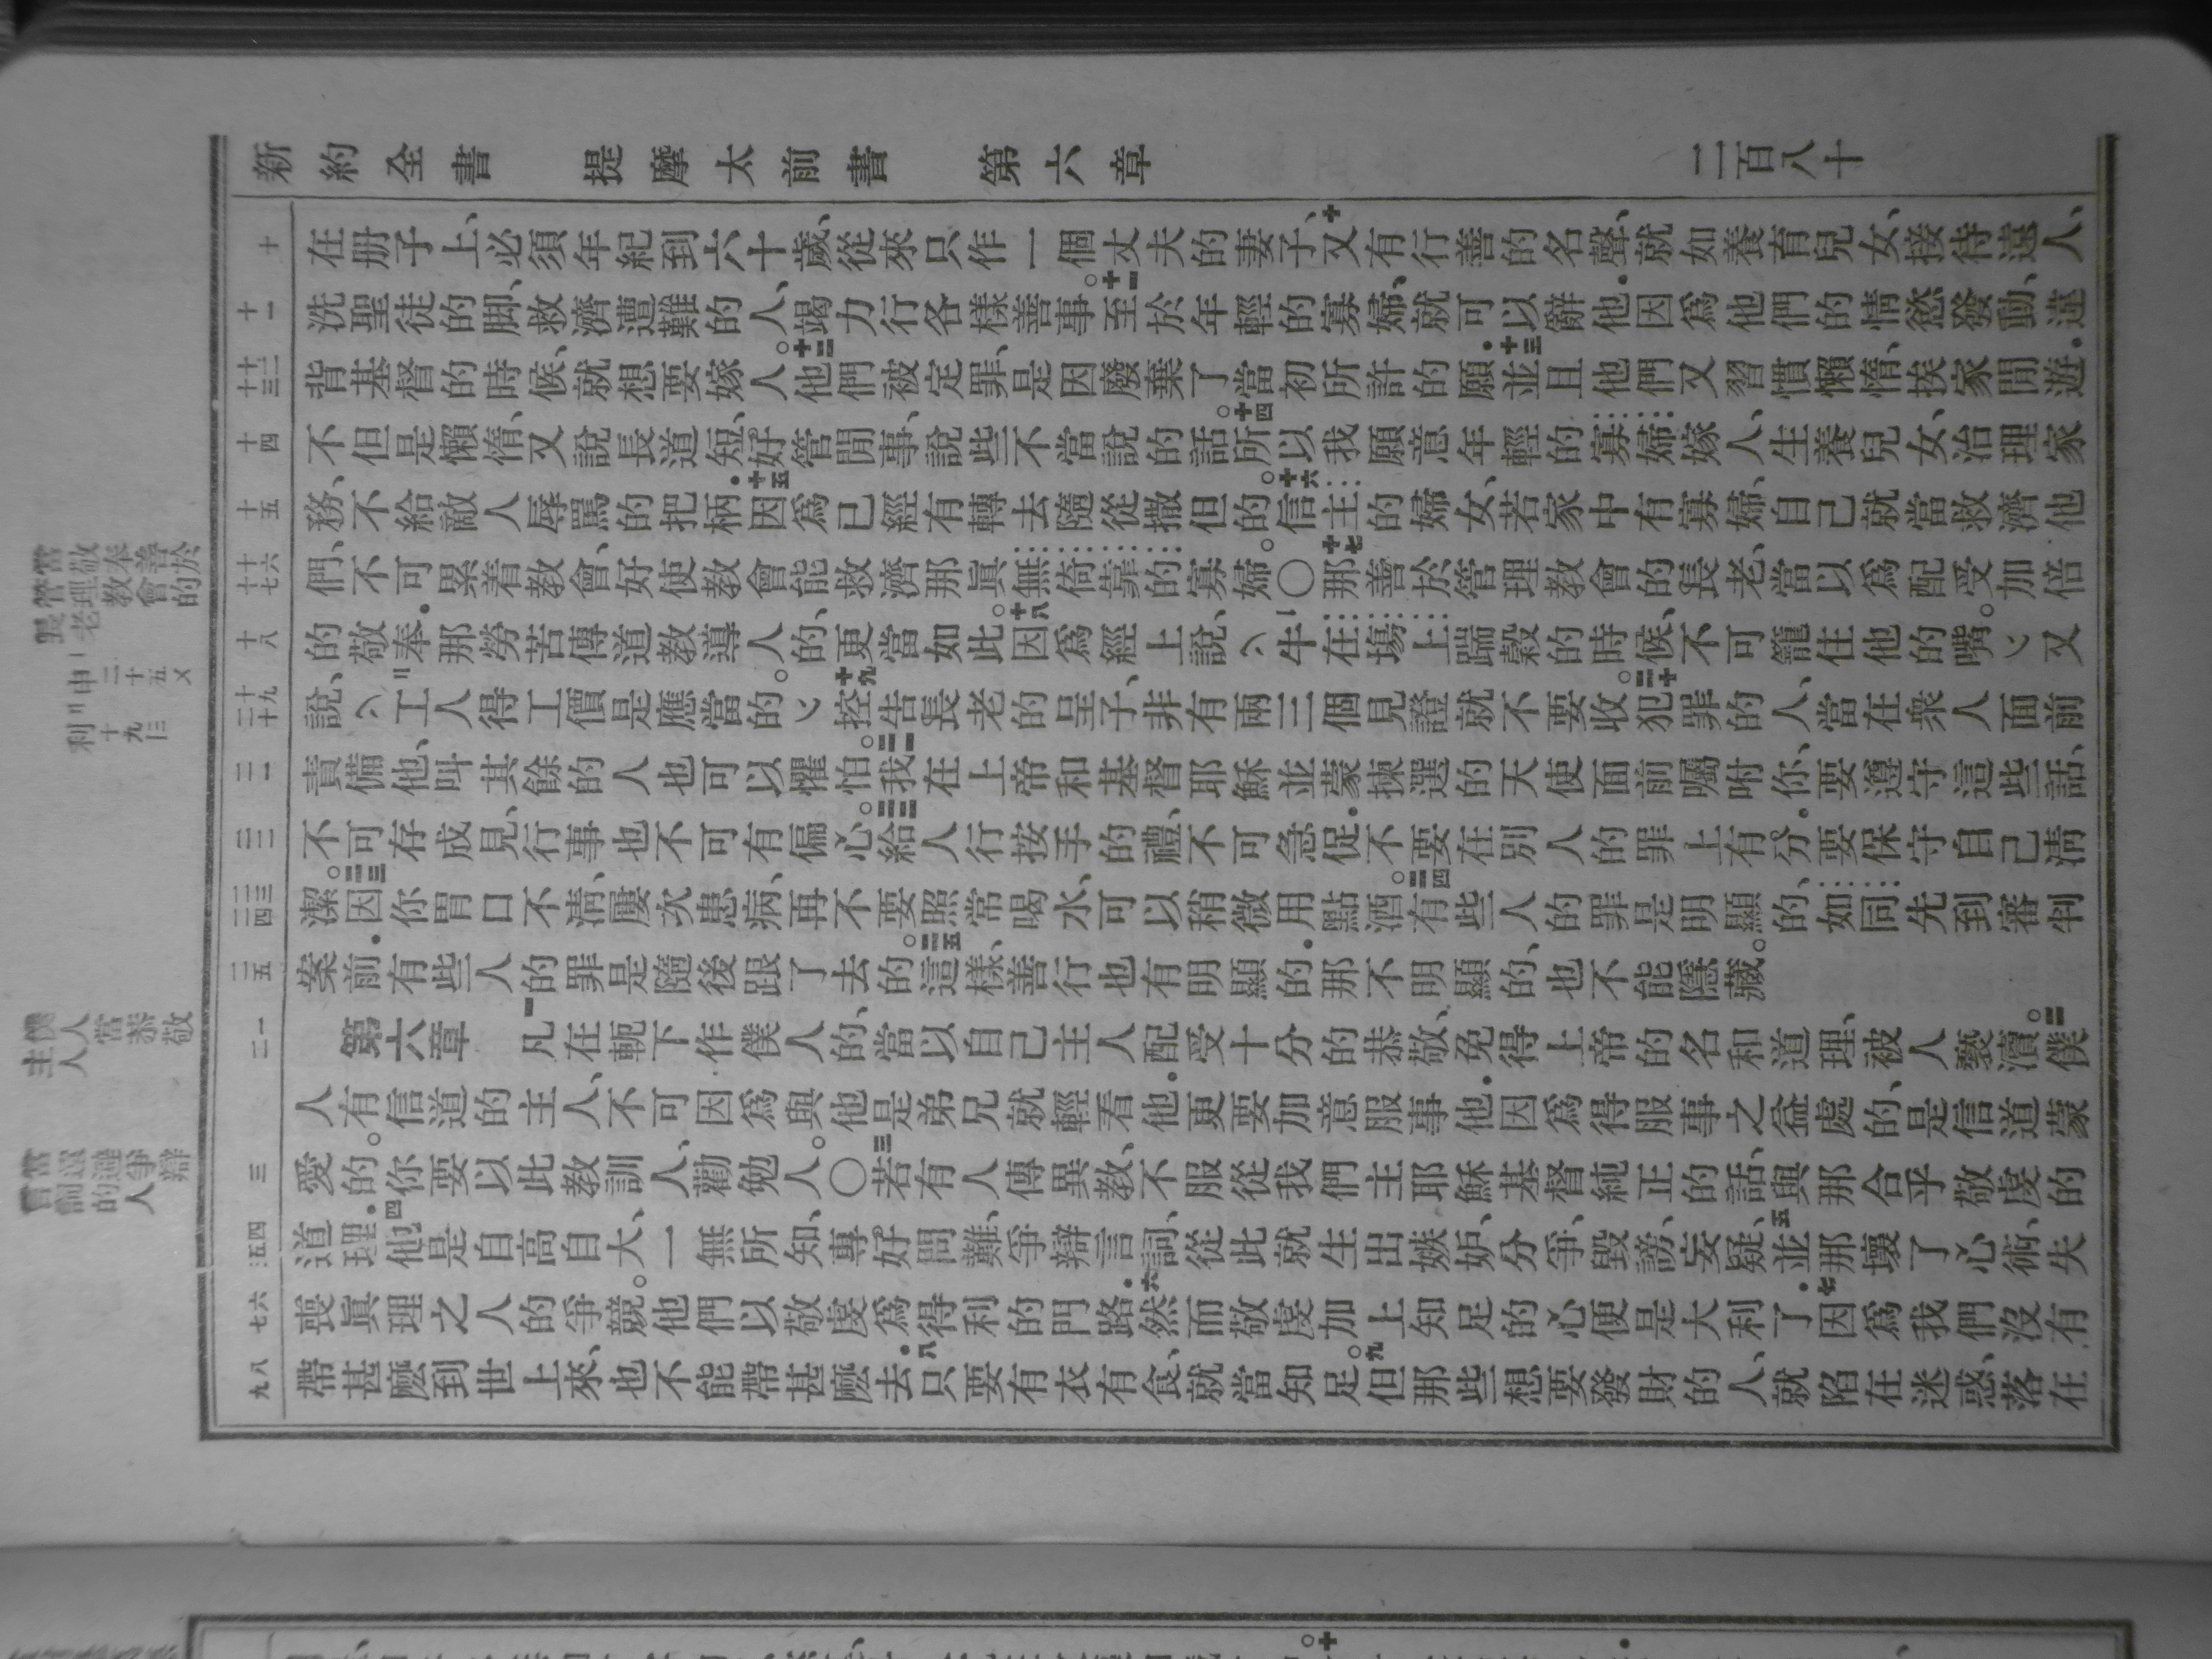 新約全書 提摩太前書 第六章 二百八十
十
在册子上、必須年紀到六十歲、從來只作一個丈夫的妻子、十又有行善的名聲、就如養育兒女、接待遠人、
十一
洗聖徒的脚、救濟遭難的人、竭力行各樣善事。十一至於年輕的寡婦、就可以辭他．因爲他們的情慾發動、違
十二 十三
背基督的時候、就想要嫁人。十二他們被定罪、是因廢棄了當初所許的願．十三並且他們又習慣懶惰、挨家閒遊．
十四
不但是懶惰、又說長道短、好管閒事、說些不當說的話。十四所以我願意年輕的寡婦嫁人、生養兒女、治理家
十五
務、不給敵人辱罵的把柄．十五因爲已經有轉去隨從撒但的。十六信主的婦女、若家中有寡婦、自己就當救濟他
十六 十七
們、不可累着教會、好使教會能救濟那眞無倚靠的寡婦。〇十七那善於管理教會的長老、當以爲配受加倍
十八
的敬奉．那勞苦傳道教導人的、更當如此。十八因爲經上說、牛在場上踹穀的時候、不可籠住他的嘴。又
十九 二十
說、工人得工價是應當的。十九控告長老的呈子、非有兩三個見證就不要收。二十犯罪的人、當在衆人面前
二一
責備他、叫其餘的人也可以懼怕。二一我在上帝和基督耶穌並蒙揀選的天使面前囑咐你、要遵守這些話、
二二
不可存成見、行事也不可有偏心。二二給人行按手的禮、不可急促．不要在別人的罪上有分．要保守自己淸
二三 二四
潔。二三因你胃口不淸、屢次患病、再不要照常喝水、可以稍微用點酒。二四有些人的罪是明顯的、如同先到審判
二五
案前．有些人的罪是隨後跟了去的。二五這樣、善行也有明顯的．那不明顯的、也不能隱藏。
一 二
第六章 一凡在軛下作僕人的、當以自己主人配受十分的恭敬、免得上帝的名和道理、被人褻瀆。二僕
人有信道的主人、不可因爲與他是弟兄就輕看他．更要加意服事他．因爲得服事之益處的、是信道蒙
三
愛的。你要以此教訓人、勸勉人。〇三若有人傳異教、不服從我們主耶穌基督純正的話、與那合乎敬虔的
四 五
道理．四他是自高自大、一無所知、專好問難、爭辯言詞、從此就生出嫉妒、分爭、毀謗、妄疑、五並那壞了心術、失
六 七
喪眞理之人的爭競。他們以敬虔爲得利的門路．六然而敬虔加上知足的心便是大利了．七因爲我們沒有
八 九
帶甚麽到世上來、也不能帶甚麽去．八只要有衣有食、就當知足。九但那些想要發財的人、就陷在迷惑、落在
當敬奉善於
管理教會的
長老
申二十五又
利十九 十三
僕人當恭敬
主人